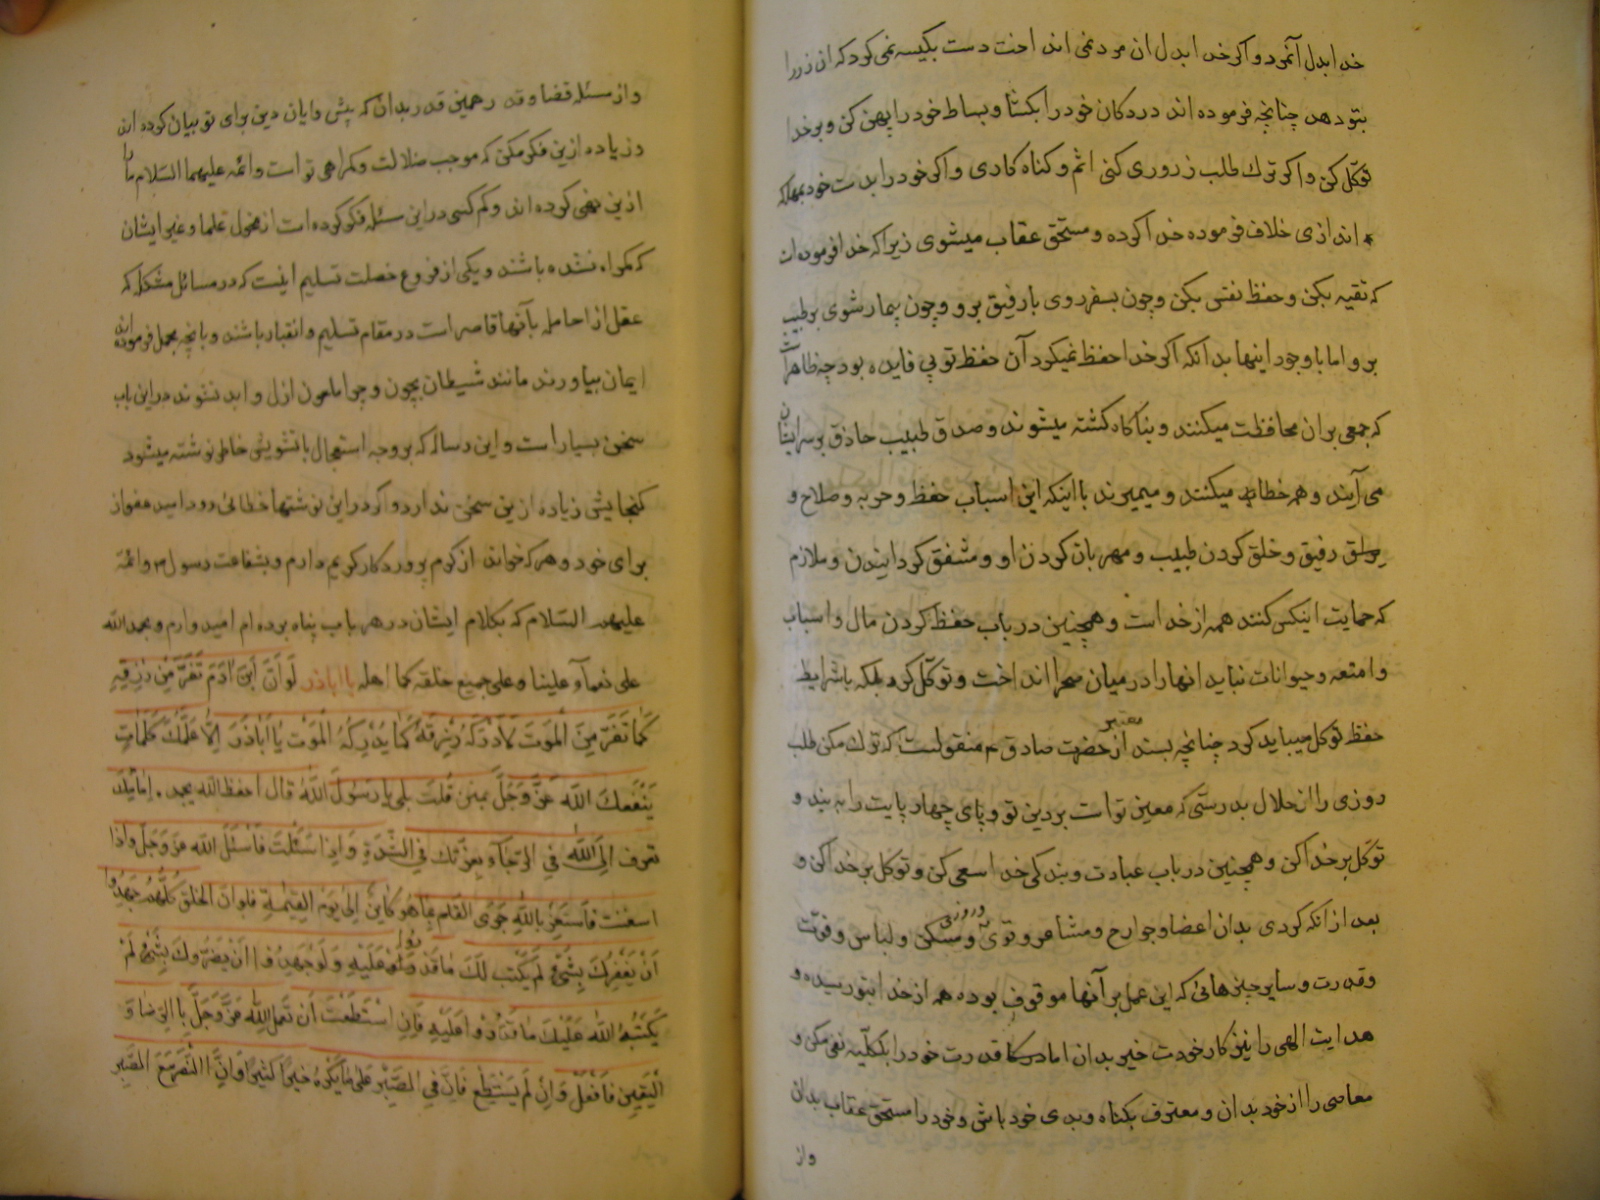 خدا بدل آنمرد و اکر خدا بدل ان مرد نمی انداخت دست بکیسه نمی کرد که ان زر را
بتو دهد چنانچه فرموده اند در دکان خود را بکشا و بساط خود را پهن کن و بر خدا
توکل کن و اکر ترک طلب ز روری کنی اثم و کناه کاری و اکر خود را بدست خود بمهلکه
اندازی خلاف فرموده خدا کرده و مستحق عقاب میشوی زیرا که خدا فرموده است
که تقیه بکن و حفظ نفس بکن و چون بسفر روی با رفیق برو و چون بیمار شوی بر طبیب
برو اما با وجود اینها بدانکه اکر خدا حفظ نمیکرد آن حفظ تو بی فایده بود چه ظاهر است
که جمعی بر ان محافظت میکنند و بناکاه کشته میشوند و صد ق طبیب حاذق بر سر ایشان
می آیند و همه خطا میکنند و میمیرند با اینکه این اسباب حفظ و حربه و صلاح و
رفیق و خلق کردن طبیب و مهربان کردن او و مشفق کردانیدن و ملازم
که حمایت اینکس کنند همه از خداست و همچنین در باب حفظ کردن مال و اسباب
و امتعه و حیوانات نباید انها را در میان صحرا انداخت و توکل کرد بلکه با شرایط
حفظ توکل میباید کرد چنانچه بسند معتبر از حضرت صادق م منقولست که ترک مکن طلب
روزی را از حلال بدرستی که معین تو است بر دین تو و پای چهار پایت را به بند و
توکل بر خدا کن و همچنین در باب عبادت و بندکی خدا سعی کن و توکل بر خدا کن و
بعد از انکه کردی بدان اعضا و جوارح و مشاعر و قوی و روزی و مسکن و لباس و قوت
و قدرت و سایر چیزهائی که این عمل بر آنها موقوف بوده همه از خدا بتو رسیده و
هدایت الهی را نیز کار خودت خیر بدان اما قدرت خود را بکلیه نفی مکن و
معاصی را از خود بدان و معترف بکناه و بدی خود باش و خود را مستحق عقاب بدان
و از
و از مسئله قضا و قدر همین قدر بدان که پیش وایان دین برای تو بیان کرده اند
و زیاده از ین فکر مکن که موجب ضلالت و کمراهی تو است و ائمه علیهما السلام ما را
از ین نهی کرده اند و کم کسی در این مسئله فکر کرده است از فحول علما و غیر ایشان
که کمراه نشده باشند و یکی از فروع خصلت تسلیم اینست که در مسائل مشکل که
عقل از احاطه بآنها قاصر است در مقام تسلیم و انقیاد باشند و بانچه مجمل فرموده اند
ایمان بیاورند مانند شیطان بچون و چرا مامون ازل و ابد نشوند در این باب
سخن بسیار است و این رساله که بر وجه استعجال با تشویش خاطر نوشته میشود
کنجایش زیاده از ین سخن ندارد و اکر در این نوشتها خطائی رود امید عفو از
برای خود و هر که خواند از کرم پروردکار کریم دارم و بشفاعت رسول م و ائمه
علیهم السلام که بکلام ایشان در هر باب پناه برده ام امیدوارم و بحمد الله
علی نعمآء علینا و علی جمیع خلقه کما اهله یا اباذر لَو اَنَّ ابنَ ادَمَ تَفَرَّ مِن رزقِه
کَما تَفَرَّ مِنَ المَوتَ لَاَدرَکَهُ رِزقَهُ کَما یُدرِکَهُ المَوتِ یا اَباذَرَ اِلّا عَلَّمَکَ کَلَماتِ
یَنفَعکَ اللّه عَزَّ وَجَلَّ بِهِنَ قُلتَ بَلی یا رَسُولَ اللّهِ قال احفظ الله یجد ، امامَک
تعرف اِلَی اللّهِ فِی الرَّخآءِ یعرّفک فِی الشِدّةِ وَ اِذا سَئَلتَ فَاسئَلَ اللّه عَزَّ وَجَلَّ وَاذا
استعنت فَاستَعِن بِاللّهِ جَرَی القَلَم بِما هُوَ کایِنُ اِلی یَومِ القِیمَةِ فلو اَنَّ الخلق کُلَّهُم جَهَدوا
اَن یَنفَعُوکَ بِشَیءٍ لَم یَکتُب لَکَ ما قَدَروا عَلَیهِ وَلَو جَهَدوا اَن یَضَرّوکَ بِشَیءٍ لَم
یَکتُبهُ اللّه عَلَیکَ ما قَدَرُوا عَلَیهِ فَاِنِ استَطَعتَ اَن تَعمَل للّهِ عَزَّ وَجَلَّ بِالرّضا وَ
الیَقینِ فَافعَل وَ اِن لَم یَستَطِع فَاِنَّ فِی الصَبرِ عَلی ما یَکرَهُ خیراً کثیراً وَ اِنَّ النَصرَ مَعَ الصَبرِ